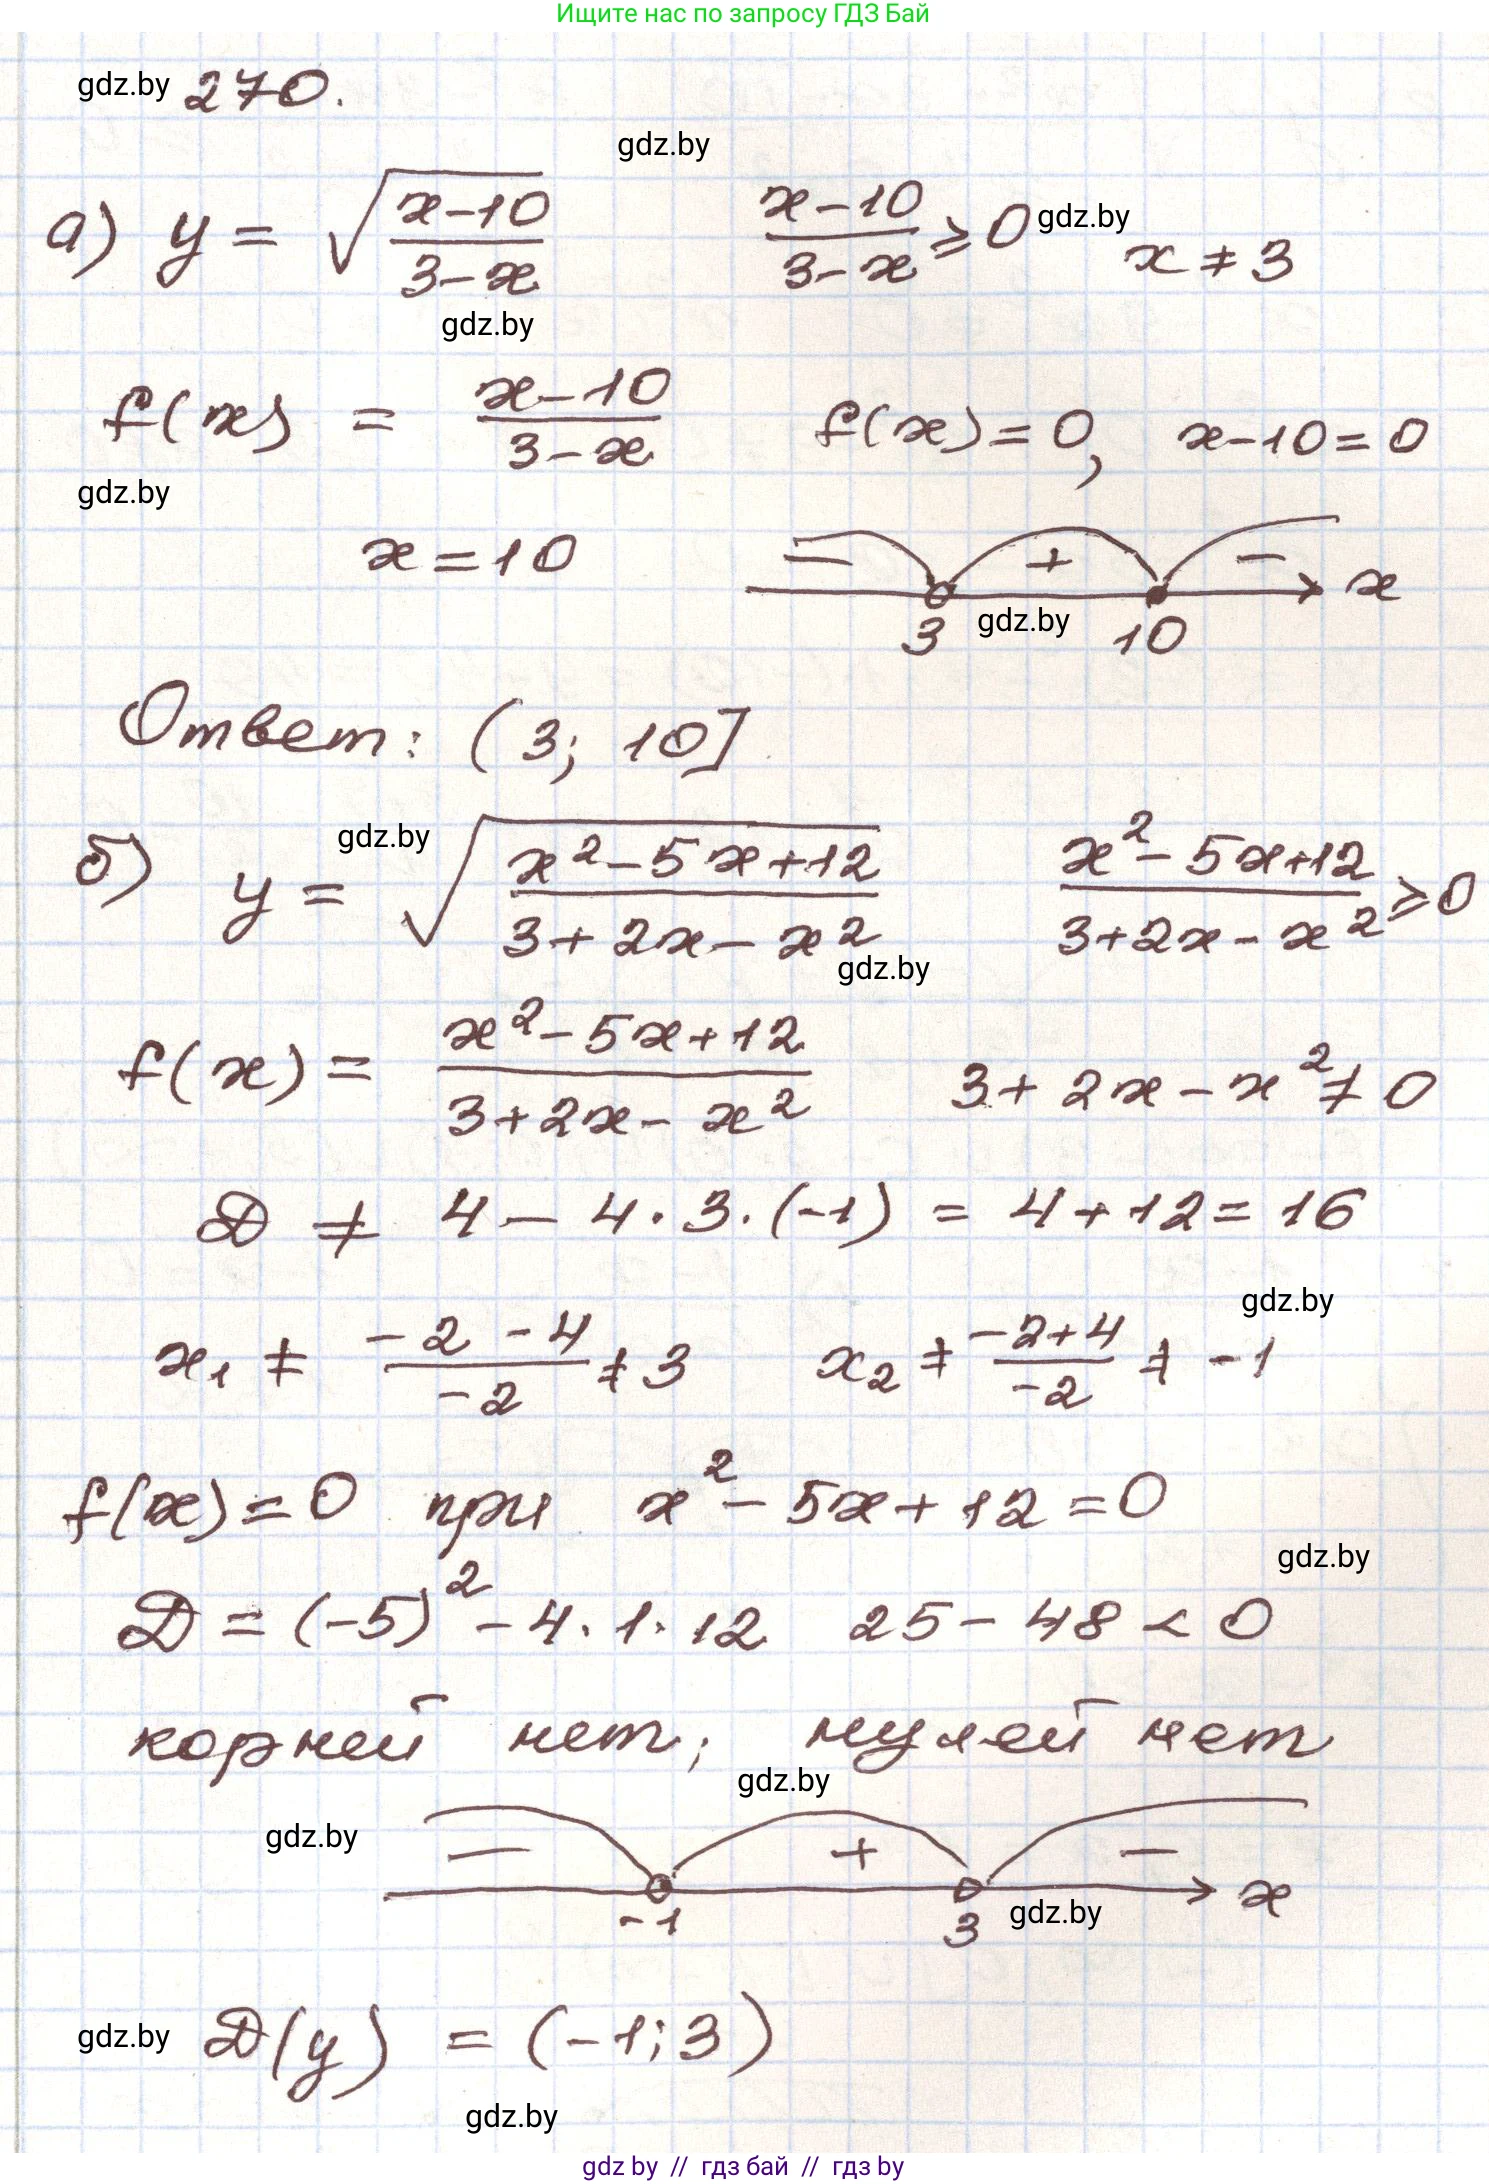 Ищите нас по запросу ГДЗ Бай
gdz.by 270.
gdz.by
а) y = √((x-10)/(3-x))   (x-10)/(3-x) ⩾ 0 gdz.by x ≠ 3
gdz.by
f(x) = (x-10)/(3-x)   f(x) = 0, x-10 = 0
gdz.by
x = 10   − + − x
3 gdz.by 10
Ответ: (3; 10]
gdz.by
б) y = √((x²-5x+12)/(3+2x-x²))   (x²-5x+12)/(3+2x-x²) ⩾ 0
gdz.by
f(x) = (x²-5x+12)/(3+2x-x²)   3+2x-x² ≠ 0
D ≠ 4 - 4·3·(-1) = 4+12 = 16
gdz.by
x₁ ≠ (-2-4)/(-2) ≠ 3   x₂ ≠ (-2+4)/(-2) ≠ -1
f(x) = 0 при x²-5x+12 = 0
gdz.by
D = (-5)² - 4·1·12   25 - 48 < 0
корней нет; нулей нет
gdz.by
gdz.by
− + − x
-1   3 gdz.by
gdz.by D(y) = (-1; 3)
gdz.by
gdz by // гдз бай // гдз by